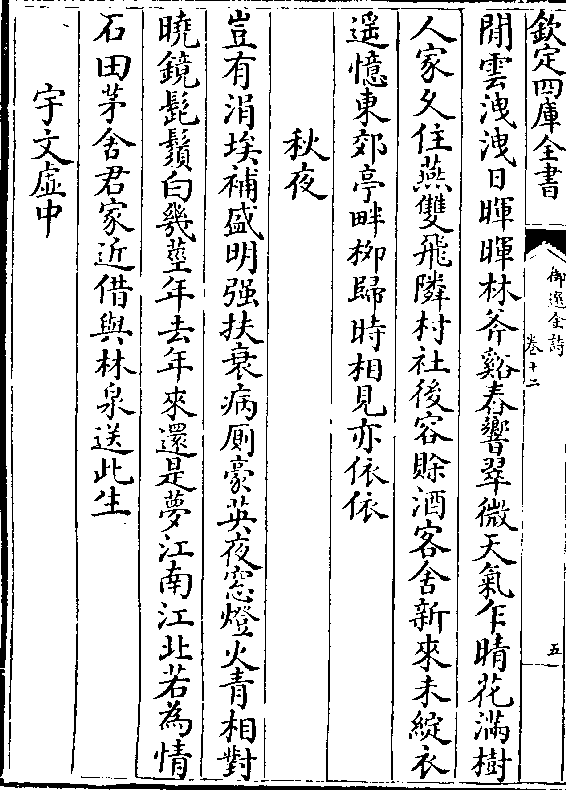 欽定四庫全書
御選金詩
卷十二
五
閒雲洩洩日暉暉林斧谿舂響翠微天氣乍晴花滿樹
人家久住燕雙飛隣村社後容賖酒客舍新來未綻衣
遥憶東郊亭畔栁歸時相見亦依依
秋夜
豈有涓埃補盛明强扶衰病厠豪英夜窓燈火青相對
曉鏡髭鬚白幾莖年去年來還是夢江南江北若為情
石田茅舍君家近借與林泉送此生
宇文虚中